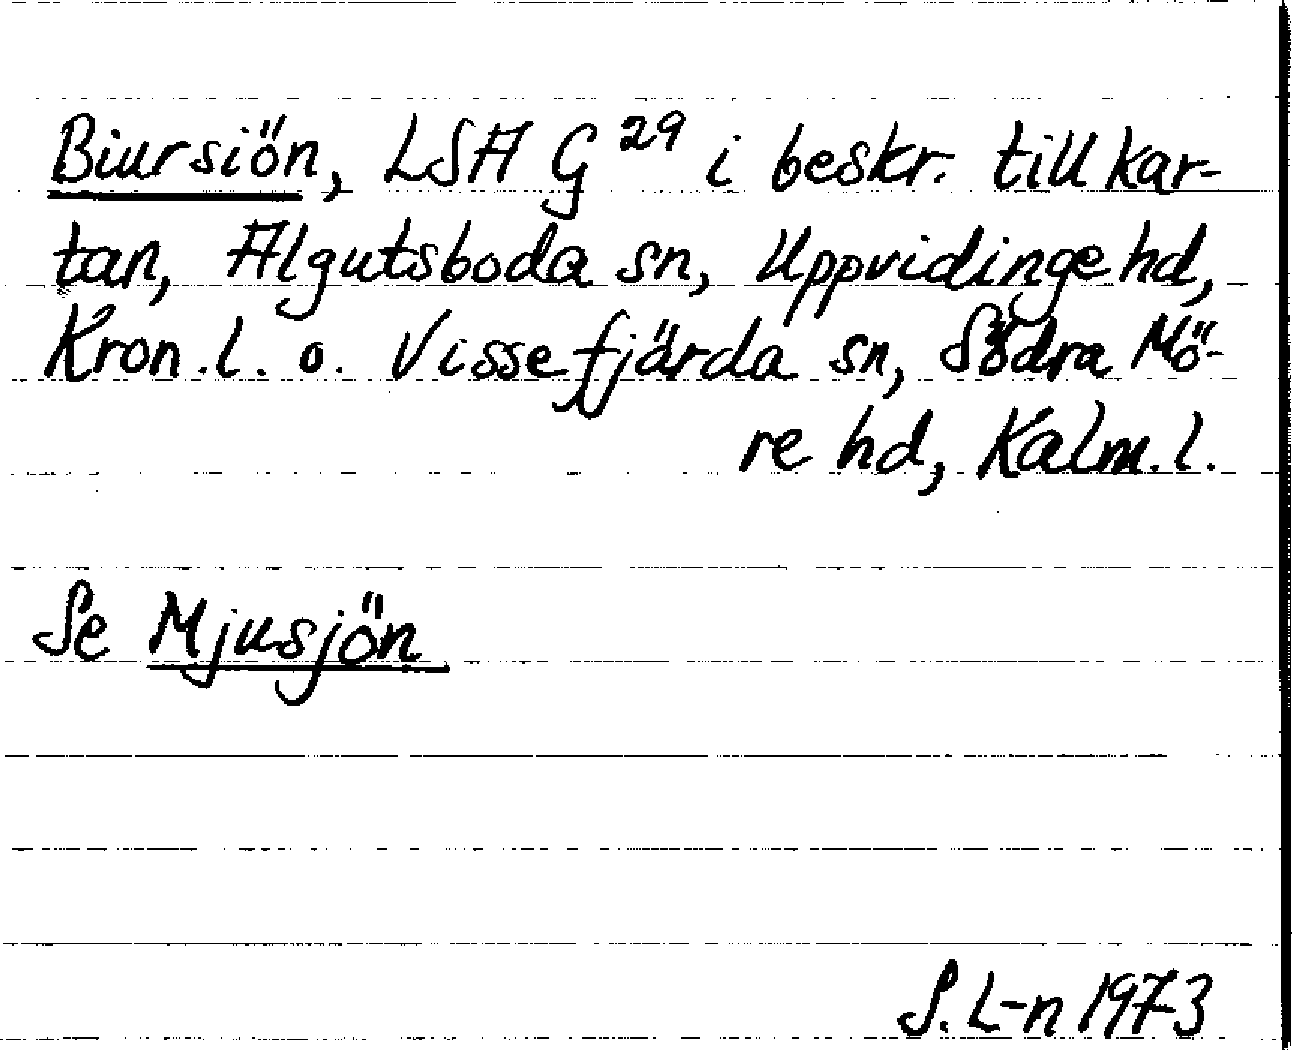 Biursiön, LSA G 29 i beskr. till kar-
tan, Algutsboda sn, Uppvidinge hd,
Kron.l. o. Vissefjärda sn, Södra Mö-
re hd, Kalm.l.
Se Mjusjön
S. L-n 1973